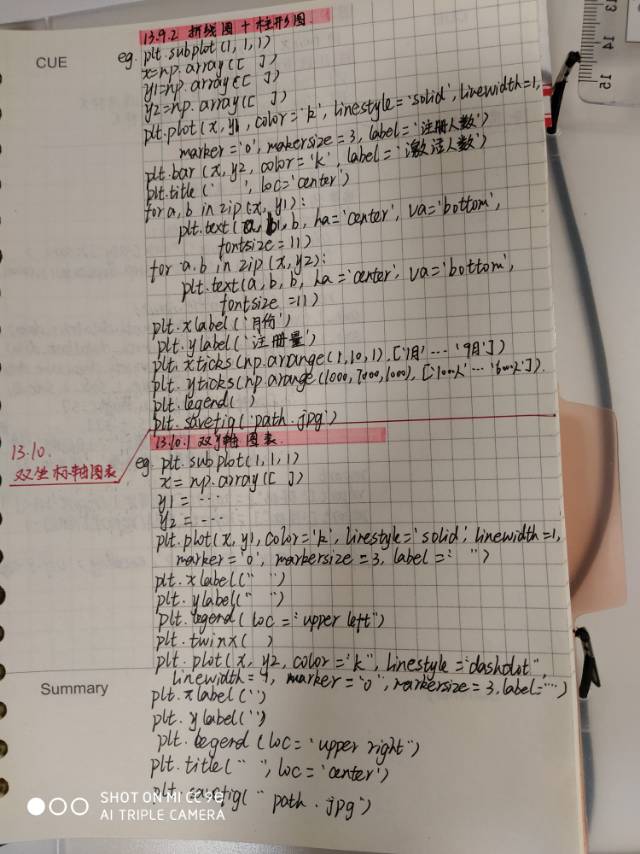 CUE
13.9.2 折线图 + 柱形图
eg. plt.subplot(1, 1, 1)
x=np.array([ ])
y1=np.array([ ])
y2=np.array([ ])
plt.plot(x, y1, color='k', linestyle='solid', linewidth=1,
marker='o', makersize=3, label='注册人数')
plt.bar(x, y2, color='k', label='激活人数')
plt.title(' ', loc='center')
for a,b in zip(x, y1):
plt.text(a, b, b, ha='center', va='bottom',
fontsize=11)
for a.b in zip(x,y2):
plt.text(a, b, b, ha='center', va='bottom',
fontsize=11)
plt.xlabel('月份')
plt.ylabel('注册量')
plt.xticks(np.arange(1,10,1),['1月' … '9月'])
plt.yticks(np.arange(1000,7000,1000), ['1000人' … '6000人'])
plt.legend( )
plt.savefig('path.jpg')
13.10.
双坐标轴图表
13.10.1 双y轴图表
eg. plt.subplot(1,1,1)
x=np.array([ ])
y1=…
y2=…
plt.plot(x, y1, color='k', linestyle='solid', linewidth=1,
marker='o', markersize=3, label=" ")
plt.xlabel(" ")
plt.ylabel(" ")
plt.legend(loc="upper left")
plt.twinx( )
plt.plot(x, y2, color="k", linestyle="dashdot",
linewidth=1, marker="o", markersize=3, label="…")
Summary
plt.xlabel(" ")
plt.ylabel(" ")
plt.legend(loc="upper right")
plt.title(" ", loc='center')
plt.savefig("path.jpg")
SHOT ON MI CC 9e
AI TRIPLE CAMERA
13
14
15